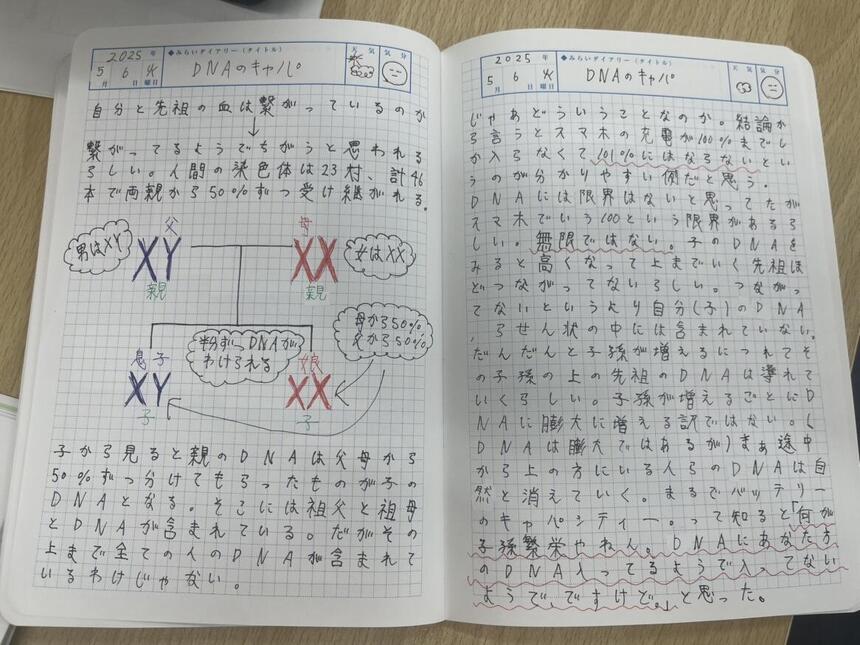 2025年
5月6日火曜日
◆みらいダイアリー(タイトル)
DNAのキャパ
天気
気分
自分と先祖の血は繋がっているのか
↓
繋がってるようでちがうと思われる
らしい。人間の染色体は23対、計46
本で両親から50%ずつ受け継がれる。
男はXY
父
XY
親
母
XX
親
女はXX
半分ずつDNAが
わけられる
母から50%
父から50%
息子
XY
子
娘
XX
子
子から見ると親のDNAは父母から
50%ずっ分けてもらったものが子の
DNAとなる。そこには祖父と祖母
とDNAが含まれている。だがその
上まで全ての人のDNAが含まれて
いるわけじゃない。
2025年
5月6日火曜日
◆みらいダイアリー(タイトル)
DNAのキャパ
天気
気分
じゃあどういうことなのか。結論か
ら言うとスマホの充電が100%までし
か入らなくて101%にはならないとい
うのが分かりやすい例だと思う。
DNAには限界はないと思ってたが
スマホでいう100という限界があるら
しい。無限ではない。子のDNAを
みると高くなって上までいく先祖ほ
どつながってないらしい。つながっ
てないというより自分(子)のDNA
、らせん状の中には含まれていない。
だんだんと子孫が増えるにつれてそ
の子孫の上の先祖のDNAは薄れて
いくらしい。子孫が増えるごとにD
NAに膨大に増える訳ではない。(
DNAは膨大ではあるが)まぁ途中
から上の方にいる人らのDNAは自
然と消えていく。まるでバッテリー
のキャパシティー。って知ると「何が
子孫繁栄やねん。DNAにあなた方
のDNA入ってるようで入ってない
ようで、ですけど。」と思った。